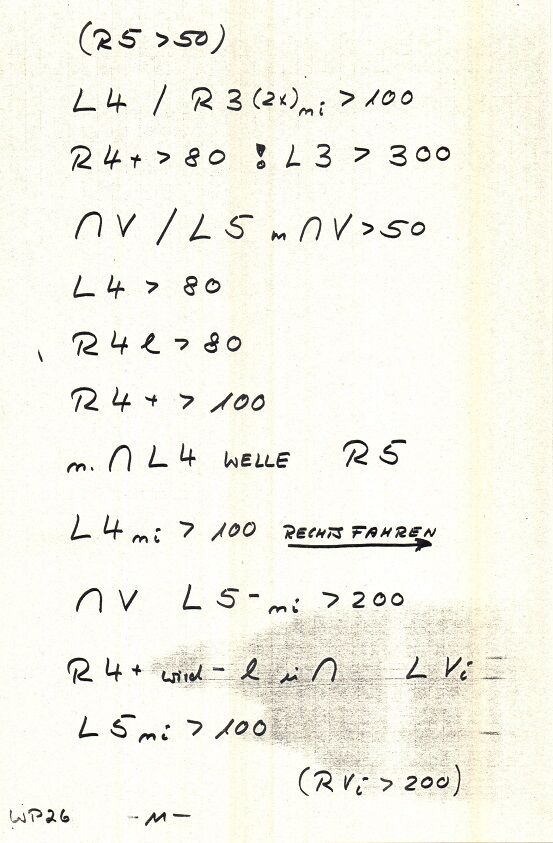 (R5 > 50)
L4 / R3 (2x) mi > 100
R4+ > 80 ! L3 > 300
∩ V / L5 m ∩ V > 50
L4 > 80
R4 l > 80
R4+ > 100
m. ∩ L4 WELLE R5
L4 mi > 100 RECHTS FAHREN
∩ V L5- mi > 200
R4+ wird - l in ∩ L Vi
L5 mi > 100
(R Vi > 200)
WP26 -M-